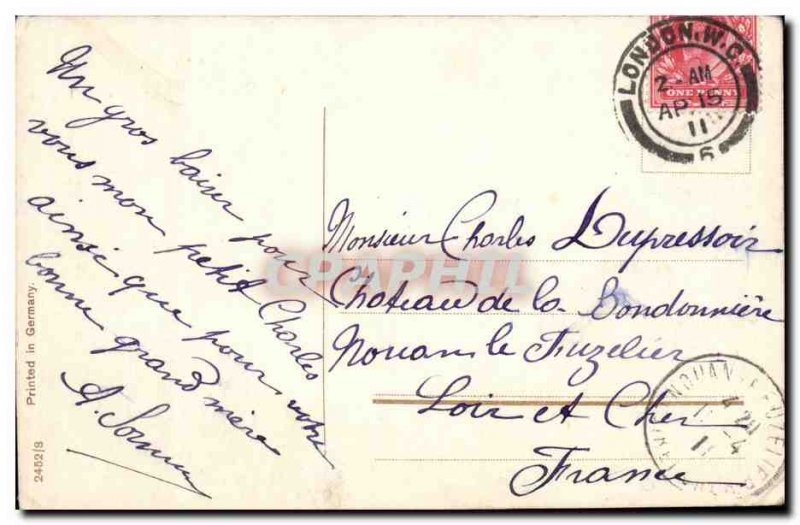 Un gros baiser pour
vous mon petit Charles
ainsi que pour votre
bonne grand mère
A.
Printed in Germany.
2452/S
LONDON. W.C.
2 - AM
AP 15
11
6
ONE PENNY
CPAPHIL
Monsieur Charles Dupressoir
Chateau de la Bondonnière
Nouan le Fuzelier
Loir et Cher
France
NOUAN